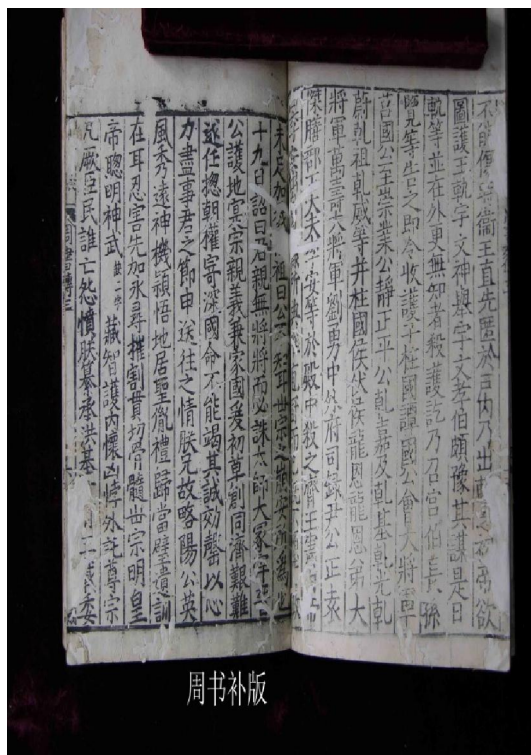 不能傷時衞王直先匿於戶內乃出斬之初帝欲
圖護王軌宇文神舉宇文孝伯頗豫其謀是日
軌等並在外更無知者殺護訖乃召宮伯長孫
覽等告之即令收護子柱國譚國公會大將軍
莒國公至崇業公靜正平公乾嘉及乾基乾光乾
蔚乾祖乾威等并柱國侯伏侯龍恩龍恩弟大
將軍萬壽大將軍劉勇中外府司錄尹公正袁
傑膳部下大夫李安等於殿中殺之齊王憲
十九日詔曰君親無將將而必誅太師大冢宰
公護地寔宗親義兼家國爰初草創同濟艱難
遂任摠朝權寄深國命不能竭其誠効罄以心
力盡事君之節申送往之情朕兄故略陽公英
風秀遠神機穎悟地居聖胤禮歸當璧遺訓
在耳忍害先加永尋摧割貫切骨髓世宗明皇
帝聰明神武 藏智護內懷凶悖外託尊宗
凡厥臣民誰亡怨憤朕纂承洪基
周書補版